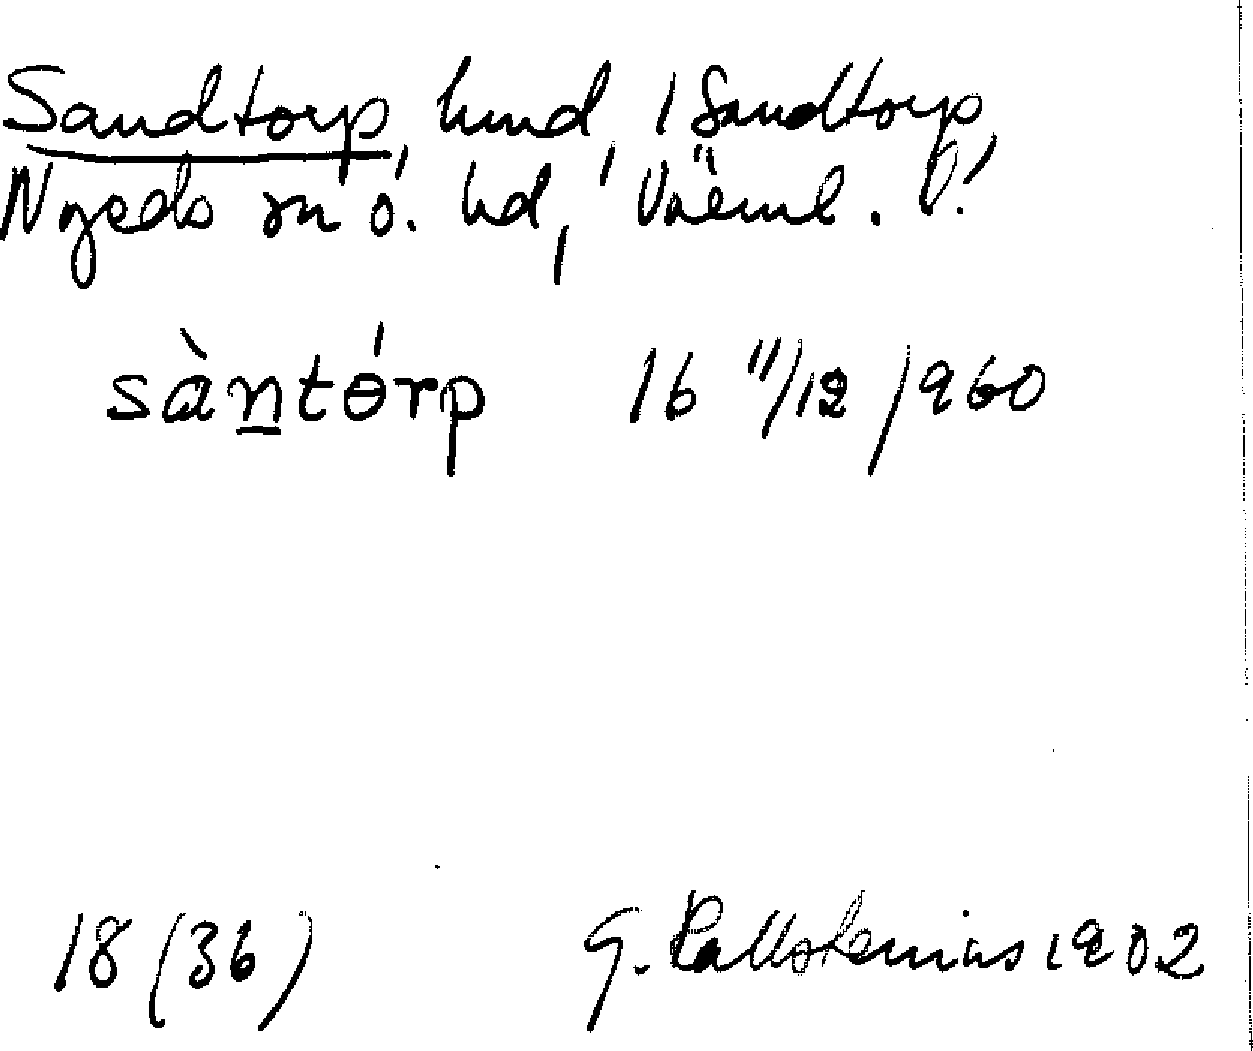 Sandtorp, hmd, 1 Sandtorp,
Nyeds sn ö. hd, Värml.
sàntɵ́rp 16 11/12 1960
18 (36) G. Kallstenius 1902